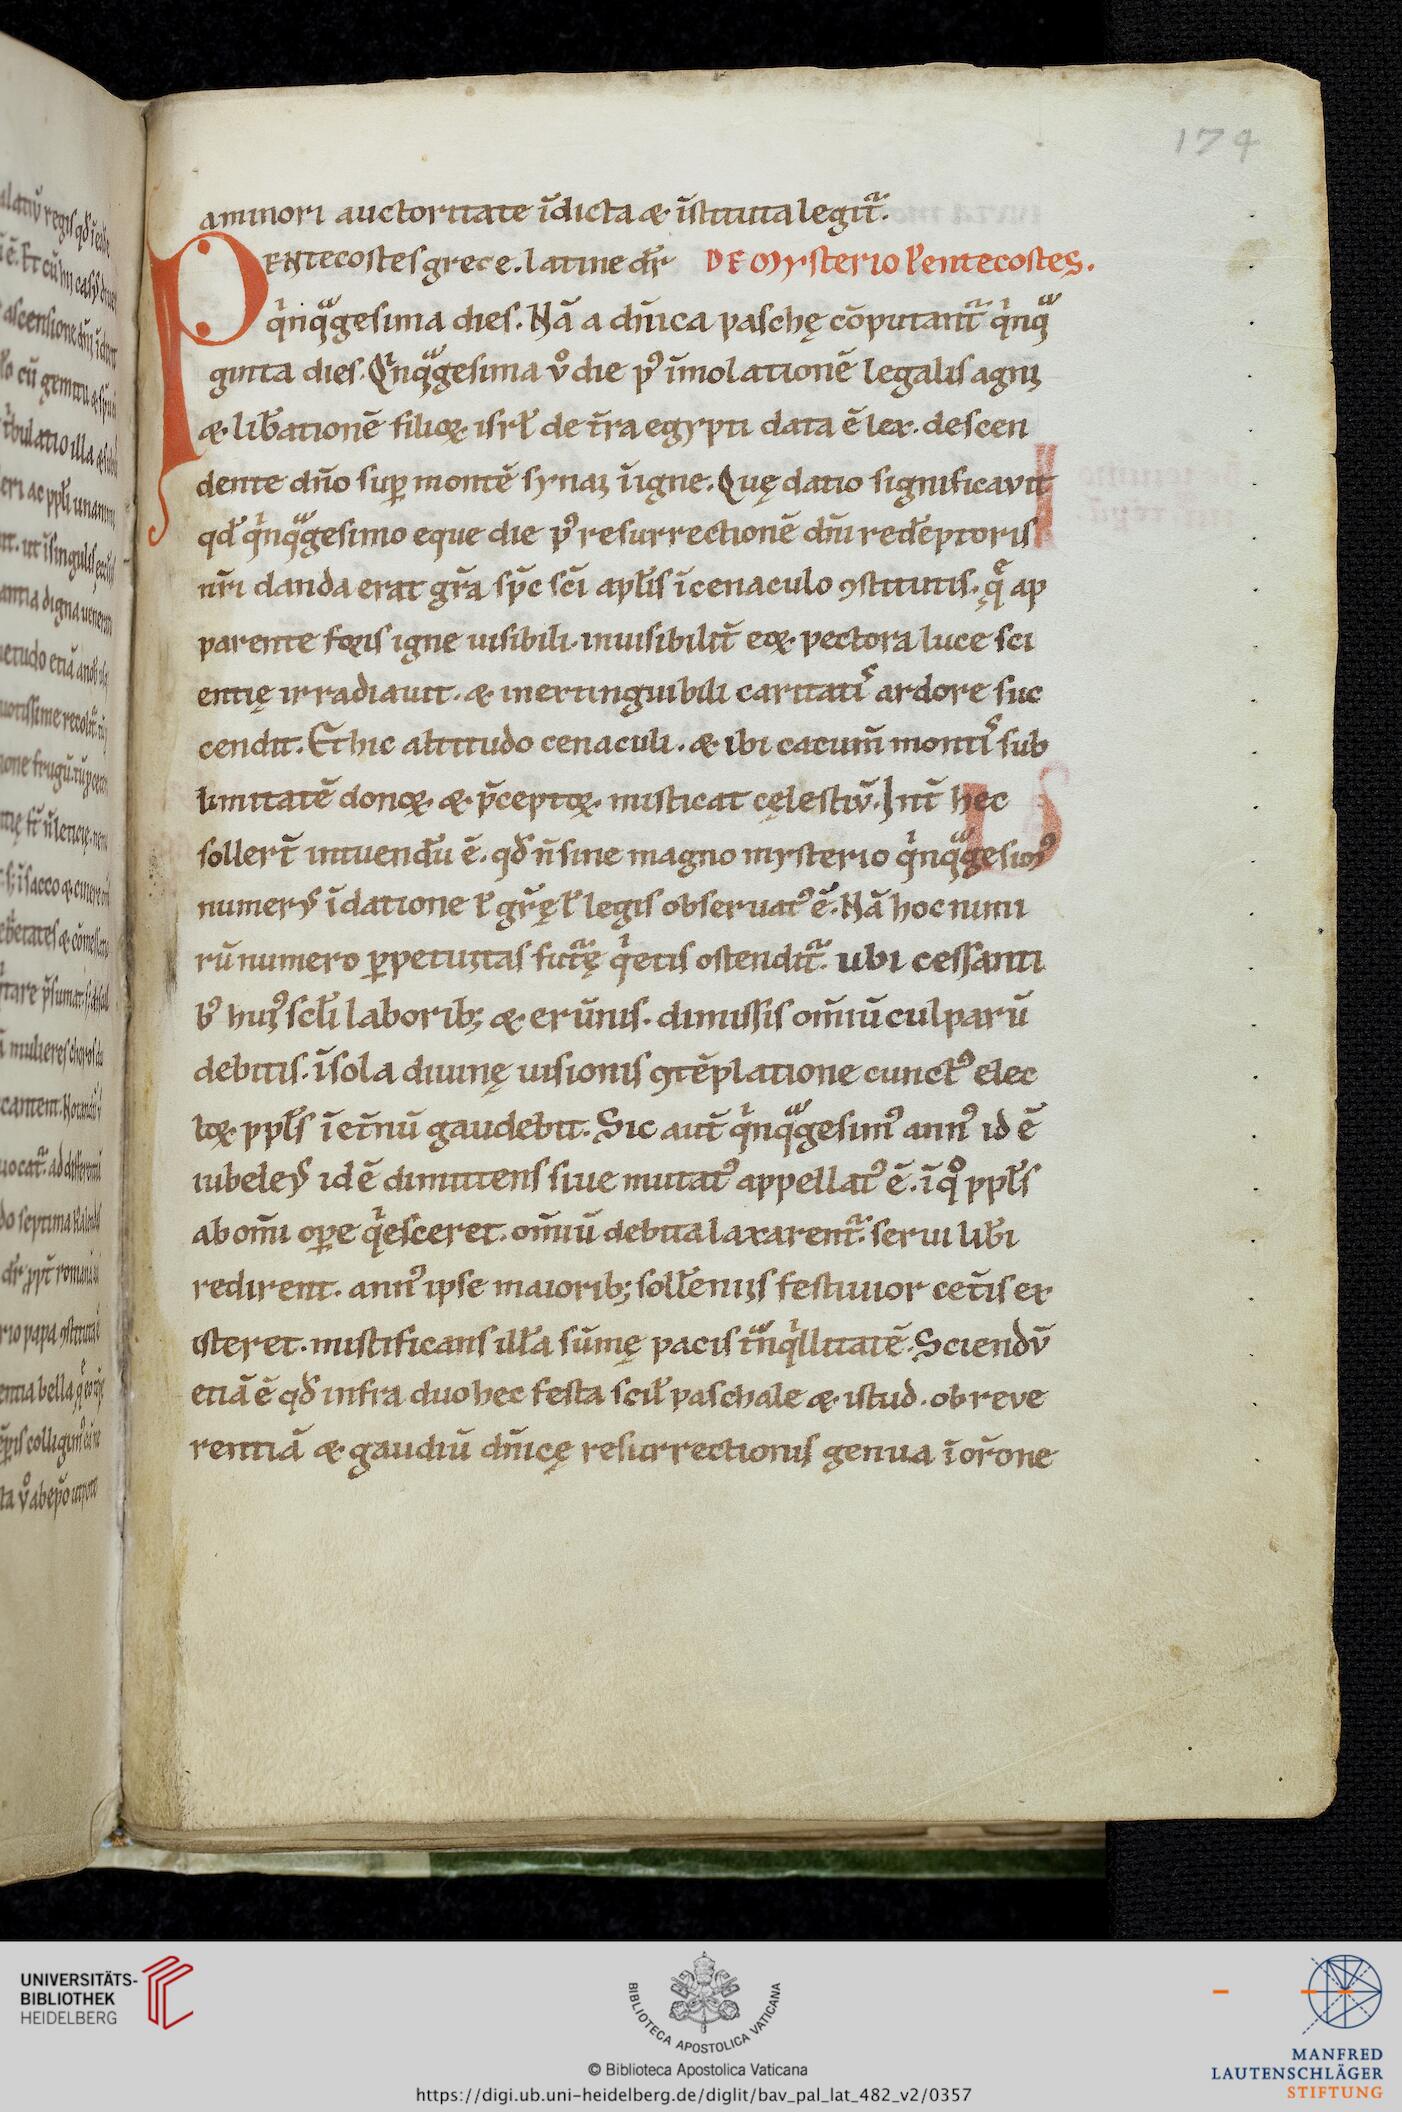 174
aminori auctoritate īdicta & īstituta legitᷓ.
PENtecostes grece. latine dr̄ DE Mysterio Pentecostes.
qͥnqᷓgesima dies. Nā a dn̄ica paschę cōputantᷓ qͥnqᷓ
ginta dies. Qͥnqᷓgesima v̊ die pꝰ īmolationē legalis agni
& lib̄ationē filioꝝ isrl̄ de t̄ra egypti data ē lex. descen
dente dn̄o suꝑ montē synai īigne. Quę datio significavit
qd̄ qͥnqᷓgesimo eque die pꝰ resurrectionē dn̄i rede̅ptoris
nr̄i danda erat gr̄a sp̄c sc̄i apl̄is īcenaculo ꝯstitutis. q̨̄ ap
parente foris igne uisibili. inuisibilit̄ eoꝝ pectora luce sci
entię irradiauit. & inextinguibili caritatiˢ ardore suc
cendit. Et hic altitudo cenaculi. & ibi cacum̄ montiˢ sub
limitatē donoꝝ & p̄ceptoꝝ misticat cęlestiū. Int̄ hec
sollert̄ intuendū ē. qd̄ n̄ sine magno mysterio qͥnqᷓgesimꝰ
numerꝰ īdatione ł gr̄ę ł legis obseruatꝰ ē. Nā hoc nimi
rū numero ꝑpetuitas futᷓę qͥetis ostenditᷓ. ubi cessanti
bꝰ huiꝰ scl̄i laborib; & erūnis. dimissis om̄iū culparū
debitis. īsola diuinę uisionis ꝯtēplatione cunctꝰ elec
toꝝ ppl̄s īet̄nū gaudebit. Sic aut̄ qͥnqᷓgesimꝰ annꝰ id ē
iubeleꝰ id ē dimittens siue mutatꝰ appellatꝰ ē. īqͦ ppl̄s
ab om̄i oꝑe qͥesceret. om̄iū debita laxarentᷓ. serui lib̄i
redirent. annꝰ ipse maiorib; solle̅niis festiuior cet̄is ex
isteret. mistificans ill̄a sūmę pacis tᷓnqͥllitatē. Sciendū
etiā ē qd̄ infra duo hec festa scil̄ paschale & istud. ob reve
rentiā & gaudiū dn̄icę resurrectionis genua īor̄one
UNIVERSITÄTS-
BIBLIOTHEK
HEIDELBERG
BIBLIOTECA APOSTOLICA VATICANA
© Biblioteca Apostolica Vaticana
https://digi.ub.uni-heidelberg.de/diglit/bav_pal_lat_482_v2/0357
MANFRED
LAUTENSCHLÄGER
STIFTUNG